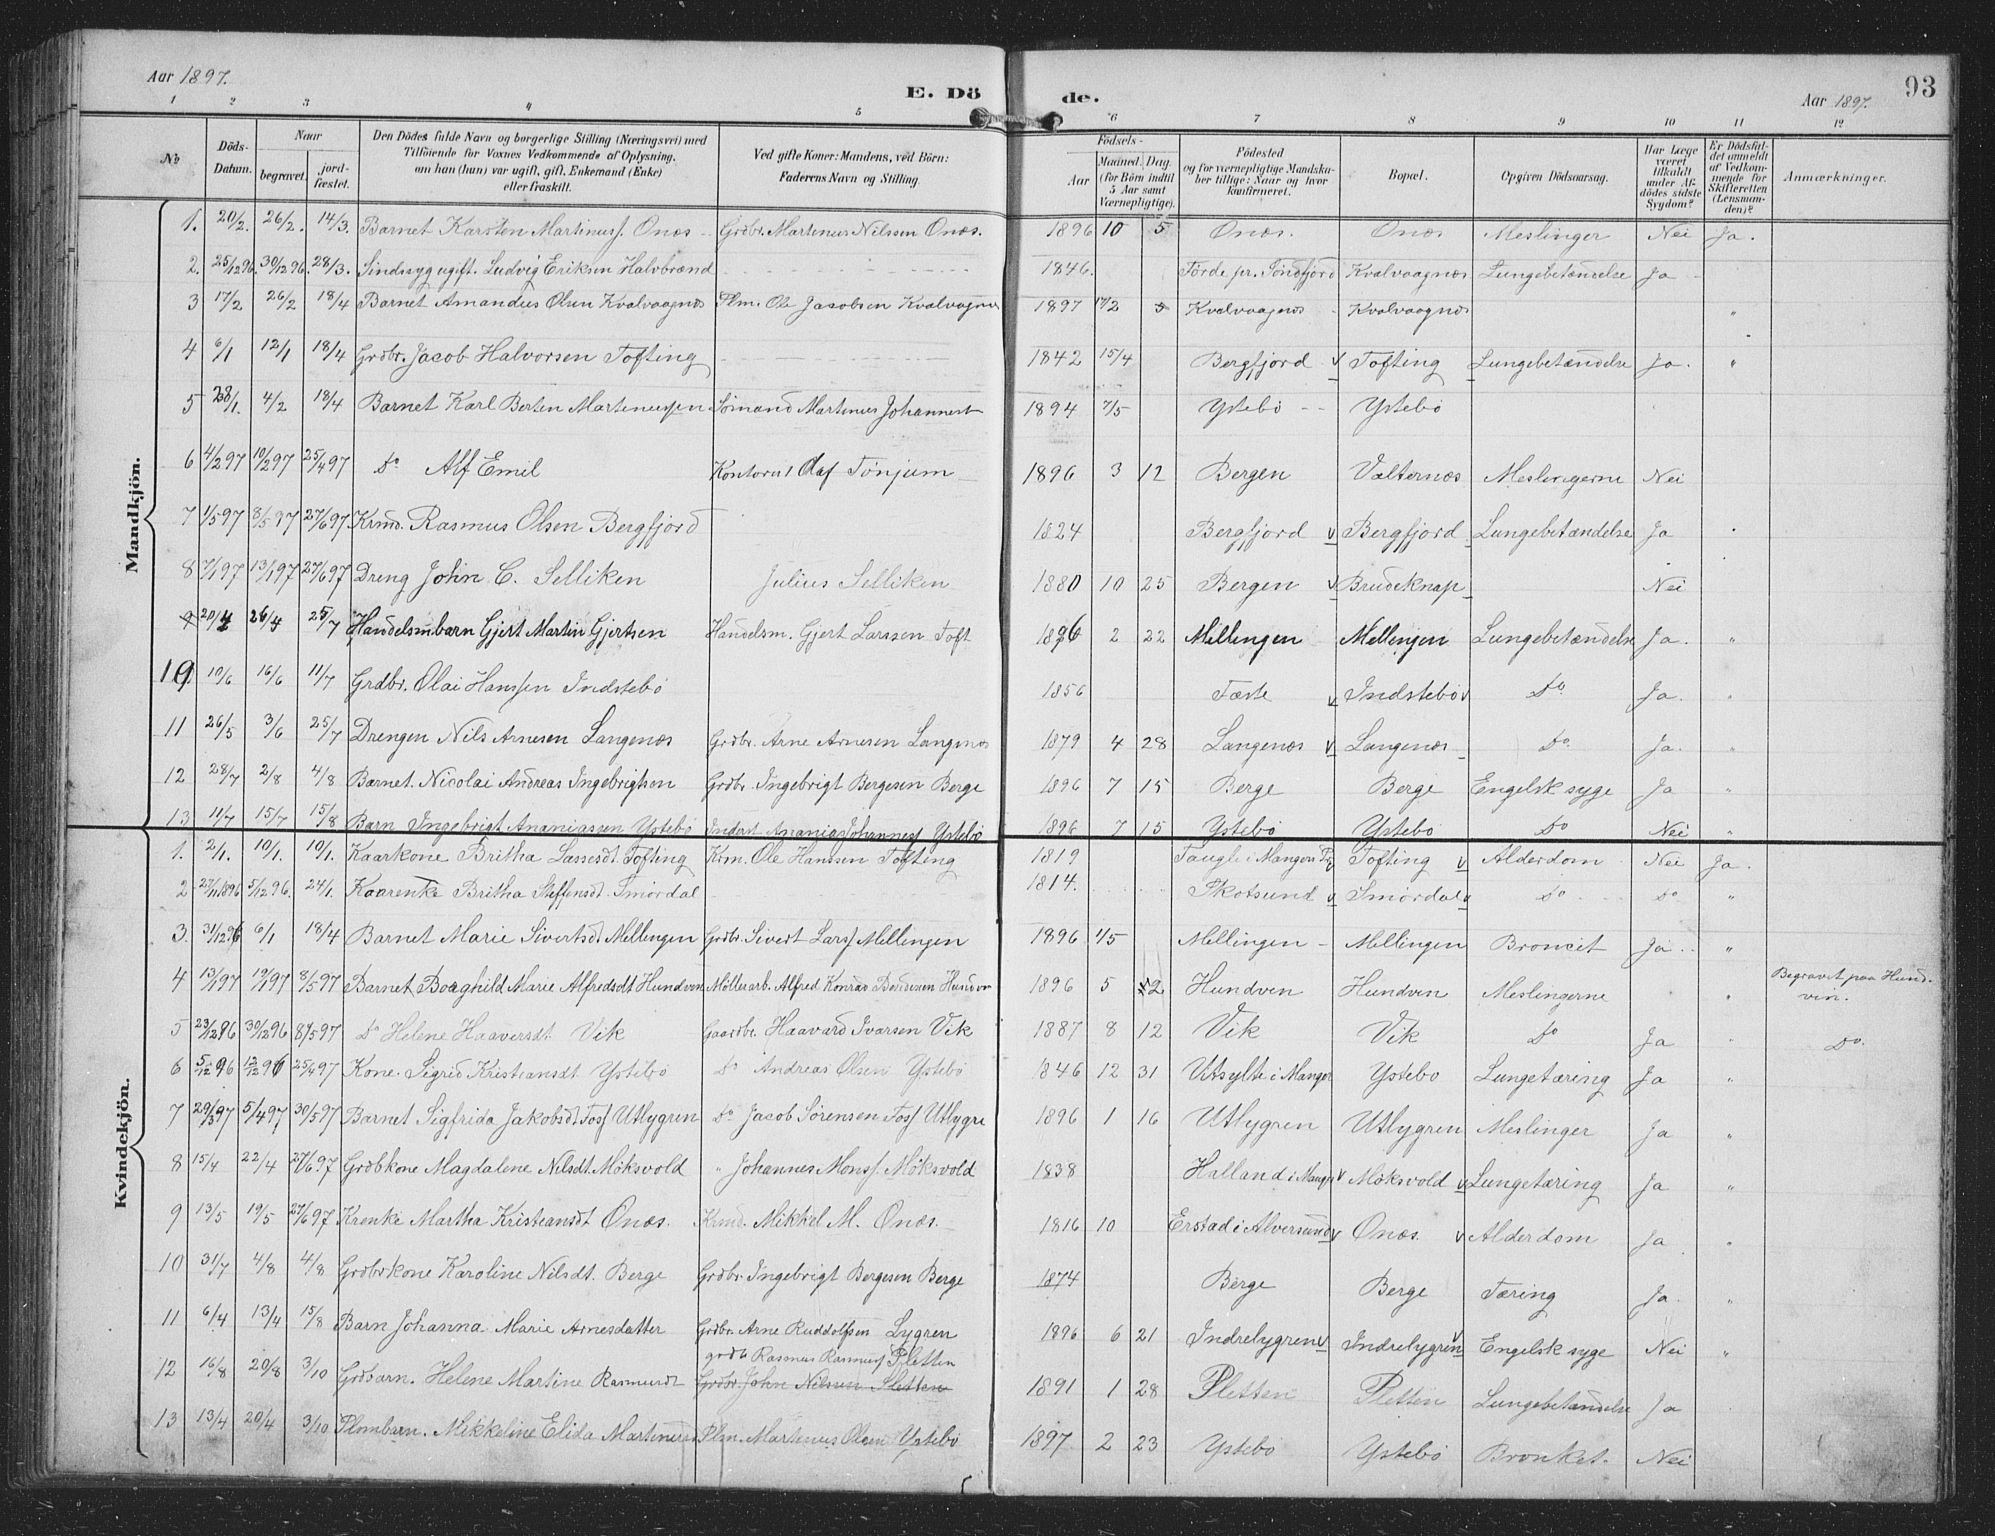 Aar 1897.
E. Dö
de.
Aar 1897.
93
1 2 3 4 5 6 7 8 9 10 11 12
No
Döds-Datum.
Naar
begravet.
jord-fæstet.
Den Dödes fulde Navn og borgerlige Stilling (Næringsvei) med
Tilföiende for Voxnes Vedkommende af Oplysning,
om han (hun) var ugift, gift, Enkemand (Enke)
eller fraskilt.
Ved gifte Koner: Mandens, ved Börn:
Faderens Navn og Stilling.
Födsels-
Aar
Maaned. Dag.
(for Börn indtil
5 Aar samt
Værnepligtige).
Födested
og for værnepligtige Mandska-
ber tillige: Naar og hvor
konfirmeret.
Bopæl.
Opgiven Dödsaarsag.
Har Læge
været
tilkaldt
under Af-
dödes sidste
Sygdom?
Er Dödsfal-
det anmeldt
af Vedkom-
mende for
Skifteretten
(Lensman-
den)?
Anmærkninger.
Mandkjön.
1. 20/2. 26/2. 14/3. Barnet Karsten Martinusf. Onæs Grdbr. Martenus Nilssen Onæs. 1896 10 5 Onæs. Onæs Meslinger Nei Ja.
2. 25/12 96. 30/12 96. 28/3. Sindssyg ugift. Ludvig Eriksen Halvbrænd 1846. Förde pr. Söndfjord Kvalvaagnæs Lungebetændelse Ja
3 17/2 26/2 18/4 Barnet Amandus Olsen Kvalvaagnæs Plm. Ole Jacobsen Kvalvagnes 1897 17/2 Kvalvaagnæs Kvalvaagnæs "
4 6/1 12/1 18/4 Grdbr. Jacob Halvorsen Tofting 1842 15/4 Bergfjord v Tofting Lungebetændelse Ja. "
5 28/1. 4/2 18/4 Barnet Karl Berten Martenussen Sömand Martenus Johannesf 1894 7/5 Ystebö Ystebö
6 4/2 97 10/2 97 25/4 97 Do Alf Emil Kontorist Olaf Tönjum 1896 3 12 Bergen Valternæs Meslingerne Nei
7 1/5 97 8/5 97 27/6 97 Krmd. Rasmus Olsen Bergfjord 1824 Bergfjord v Bergfjord Lungebetændelse Ja "
8 7/1 97 13/1 97 27/6 97 Dreng John C. Selliken Julius Selliken 1880 10 25 Bergen v Brudeknap Nei
9 20/4 26/4 25/7 Handelsmbarn Gjert Martin Gjertsen Handelsm. Gjert Larssen Toft 1896 2 22 Mellingen Mellingen Lungebetændelse Ja. "
10 10/6 16/6 11/7 Grdbr. Olai Hanssen Indstebö 1856 Tæste v Indstebö v Do Ja. "
11 26/5 3/6 25/7 Drengen Nils Arnesen Langenæs Grdbr. Arne Arnesen Langenæs 1879 4 28 Langenæs v Langenæs Do Ja. "
12 28/7 2/8 4/8 Barnet. Nicolai Andreas Ingebrigtsen Grdbr. Ingebrigt Bergesen Berge 1896 7 15 Berge Berge Engelsk syge Ja "
13 11/7 15/7 15/8 Barn Ingebrigt Ananiassen Ystebö Inderst Ananias Johannesf Ystebö 1896 7 15 Ystebö Ystebö Do Nei "
Kvindekjön.
1. 2/1. 10/1. 10/1. Kaarkone Britha Lassesdt. Tofting Krm. Ole Hanssen Tofting 1819 Taugle i Manger v Tofting v Alderdom Nei Ja.
2 27/11 1896 5/12 96. 24/1. Kaarenke Britha Steffensdt. Smördal 1814. Skotsund v Smördal v Do Do "
3. 31/12 96 6/1 18/4 Barnet Marie Sivertsdt. Mellingen Grdbr. Sivert Larsf Mellingen 1896 1/5 Mellingen Mellingen Broncit Ja "
4 13/1 97 19/1 97 8/5 97 Barnet Boaghild Marie Alfredsdt Hundven Möllerarb. Alfred Konrad Hundven 1896 5 2 Hundven Hundven Meslingerne " Begravet paa Hund-
vin.
5 23/12 96 30/12 96 8/5 97 Do Helene Haaversdt Vik Gaardbr. Haavard Ivarsen Vik 1887 8 12 Vik Vik Do Ja " Do.
6 5/12 96 12/12 96 25/4 97 Kone. Sigrid Kristiansdt Ystebö Do Andreas Olsen Ystebö 1846 12 31 Utsylte i Manger Ystebö Lungetæring Ja "
7 29/3 97 5/4 97 30/5 97 Barnet Sigfrida Jakobsdt Fosf Utlygren Do Jacob Sörensen Fosf Utlygre 1896 1 16 Utlygren Utlygren Meslinger Ja "
8 15/4 22/4 27/6 97 Grdbkone Magdalene Nilsdt. Möksvold " Johannes Monsf. Möksvold 1838 Halland i Manger v Möksvold v Lungetæring Ja "
9 13/5 19/5 27/6 97 Krenke Martha Kristiansdt Onæs. Krmd. Mikkel M. Onæs. 1816 10 Erstad i Alversund v Onæs. v Alderdom Ja "
10 31/7 4/8 4/8 Grdbrkone Karoline Nilsdt. Berge Grdbr. Ingebrigt Bergesen Berge 1874 Berge Berge Tæring Ja. "
11 6/4 13/4 15/8 Barn Johanna Marie Arnesdatter Grdbr. Arne Ruddolfsen Lygren 1896 6 21 Indrelygren v Indrelygren v Engelsk syge Nei "
grdb Rasmus Rasmusf Pletten
12 16/8 20/8 3/10 Grdbarn. Helene Martine Rasmusdt Grdbr. John Nilssen Pletten 1891 1 28 Pletten Pletten Lungebetændelse Ja
13 13/4 20/4 3/10 Plmbarn. Mikkeline Elida Martenusd Plm. Martenus Olsen Ystebö 1897 2 23 Ystebö Ystebö Bronket. Nei